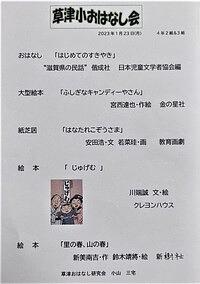 草津小おはなし会
2023年1月23日(月) 4年2組&3組
おはなし 「はじめてのすきやき」
“滋賀県の民話” 偕成社 日本児童文学者協会編
大型絵本 「ふしぎなキャンディーやさん」
宮西達也・作絵 金の星社
紙芝居 「はなたれこぞうさま」
安田浩・文 若菜珪・画 教育画劇
絵 本 「じゅげむ」
川端誠 文・絵
クレヨンハウス
絵 本 「里の春、山の春」
新美南吉・作 鈴木靖將・絵 新
草津おはなし研究会 小山 三宅